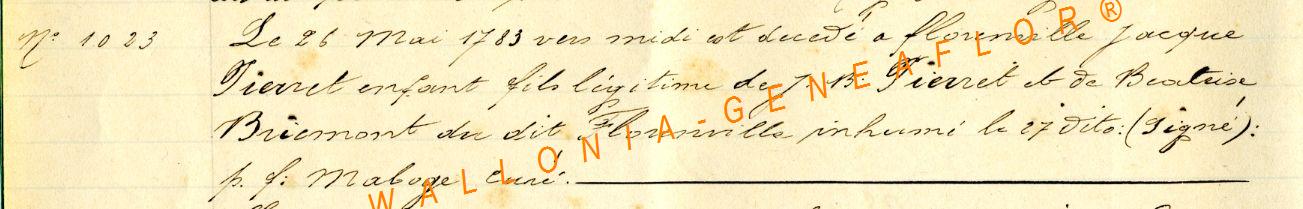 N° 1023 Le 26 Mai 1783 vers midi est decedé a florenville Jacque
Pierret enfant fils légitime de J. B. Pierret et de Beatrise
Briemont du dit Florenville inhumé le 27 dito: (Signé):
p. f: Maboge curé.
WALLONIA-GENEAFLOR®